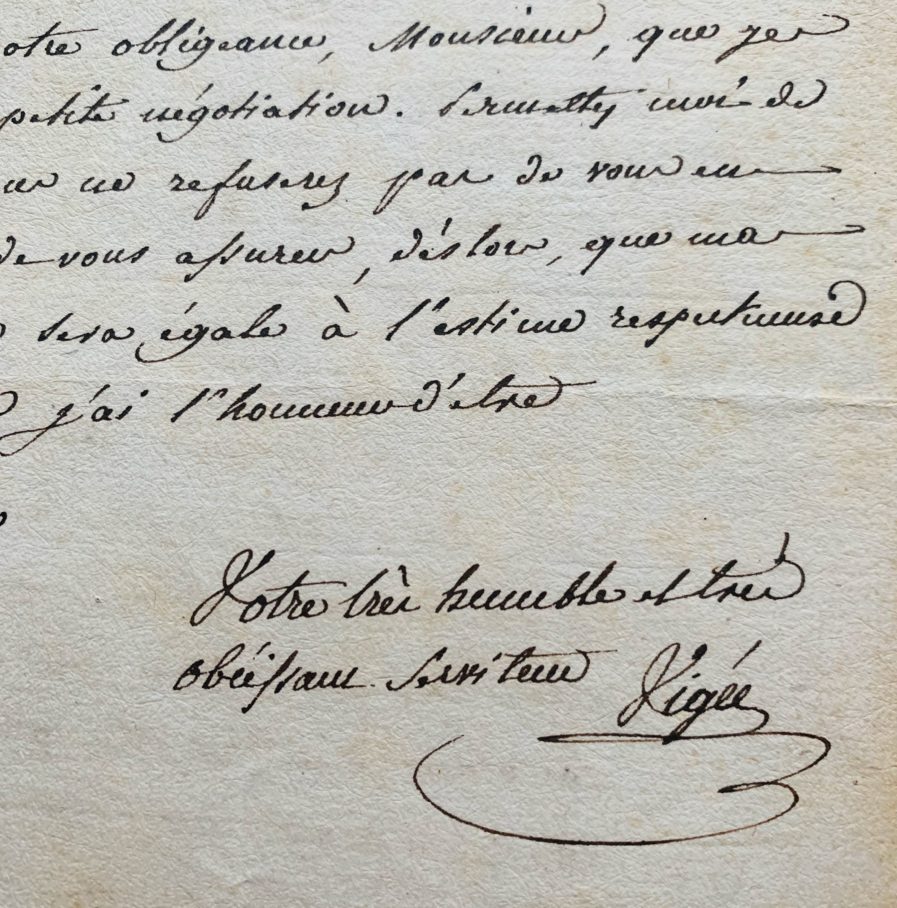 otre obligeance, Monsieur, que je
petite négotiation. Permettez moi de
ne refuserez pas de vous en
de vous assurer, dèslors, que ma
sera égale à l'estime respectueuse
j'ai l'honneur d'être
Votre très humble et très
obéissant serviteur Vigée